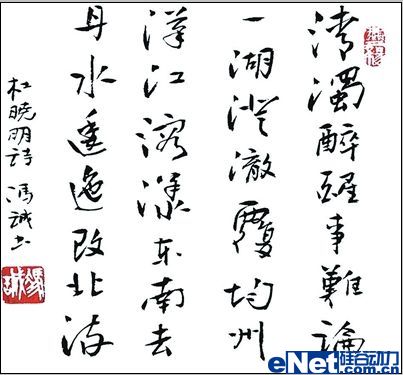 清濁醉醒事難論
一湖澄澈覆均州
漢江溶漾东南去
丹水逶迤改北流
杜曉明詩 馮誠书
eNet硅谷动力
.com.cn